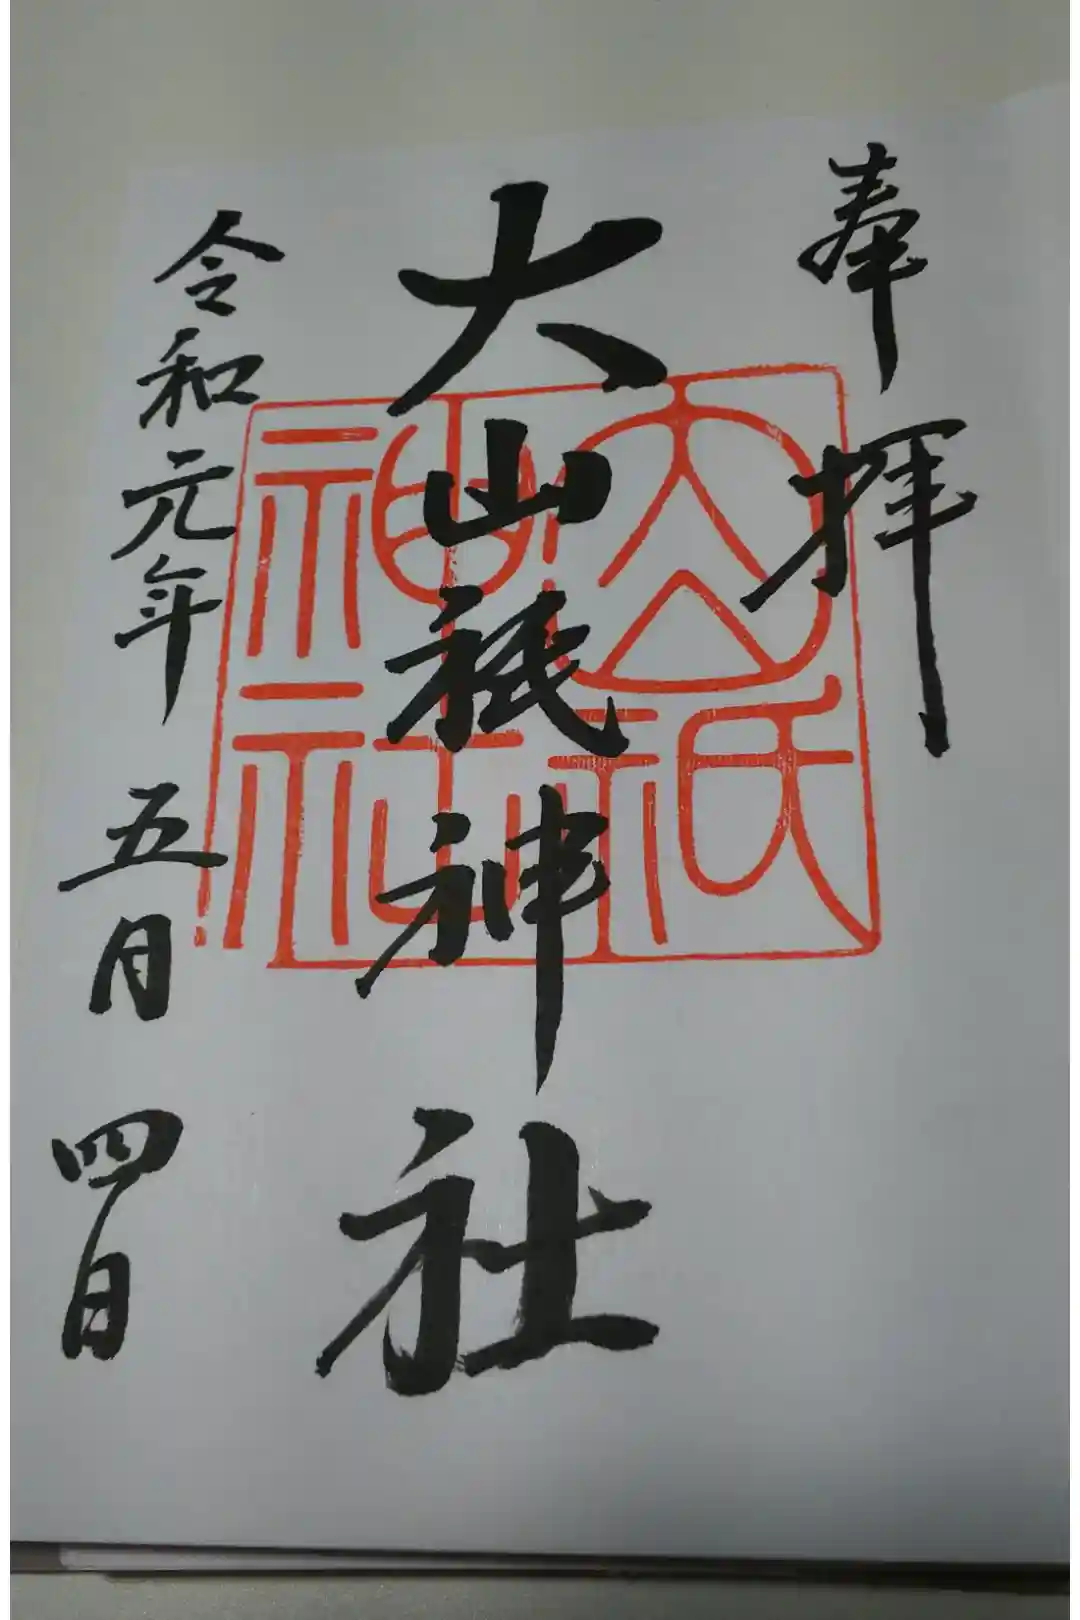 奉拝
大山祇神社
大山祇神社
令和元年五月四日